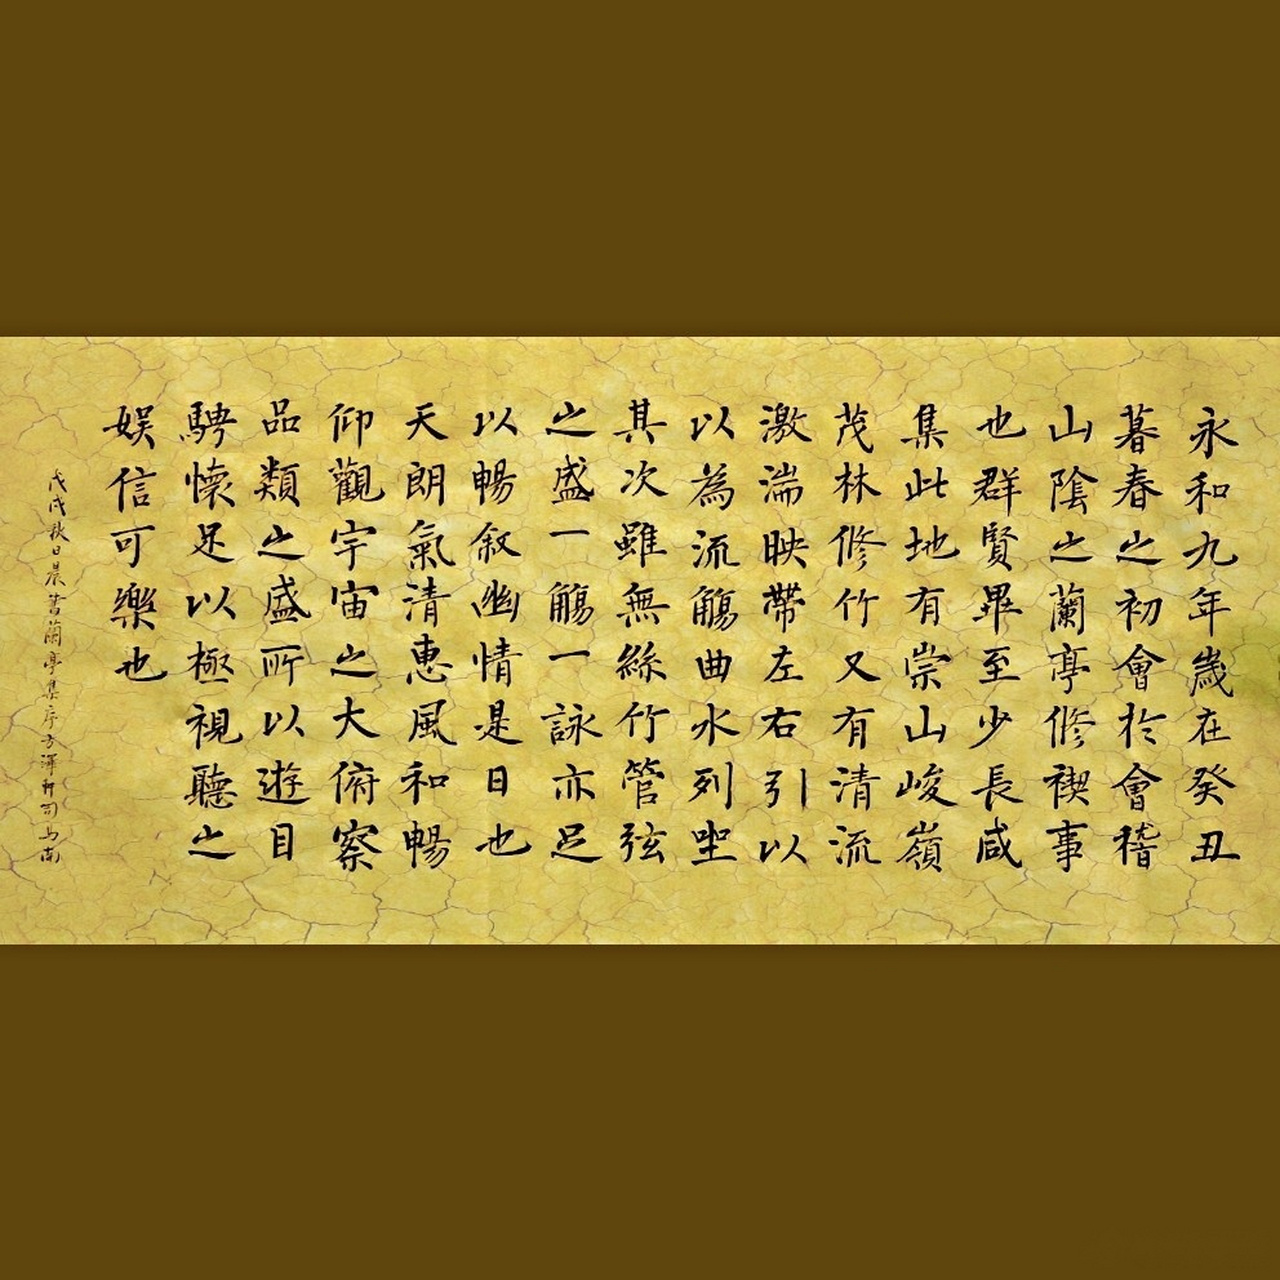 永和九年歲在癸丑
暮春之初會於會稽
山陰之蘭亭修禊事
也群賢畢至少長咸
集此地有崇山峻嶺
茂林修竹又有清流
激湍映帶左右引以
以為流觴曲水列坐
其次雖無絲竹管弦
之盛一觴一詠亦足
以暢敘幽情是日也
天朗氣清惠風和暢
仰觀宇宙之大俯察
品類之盛所以遊目
騁懷足以極視聽之
娛信可樂也
戊戌秋日晨書蘭亭集序方澤軒司馬南